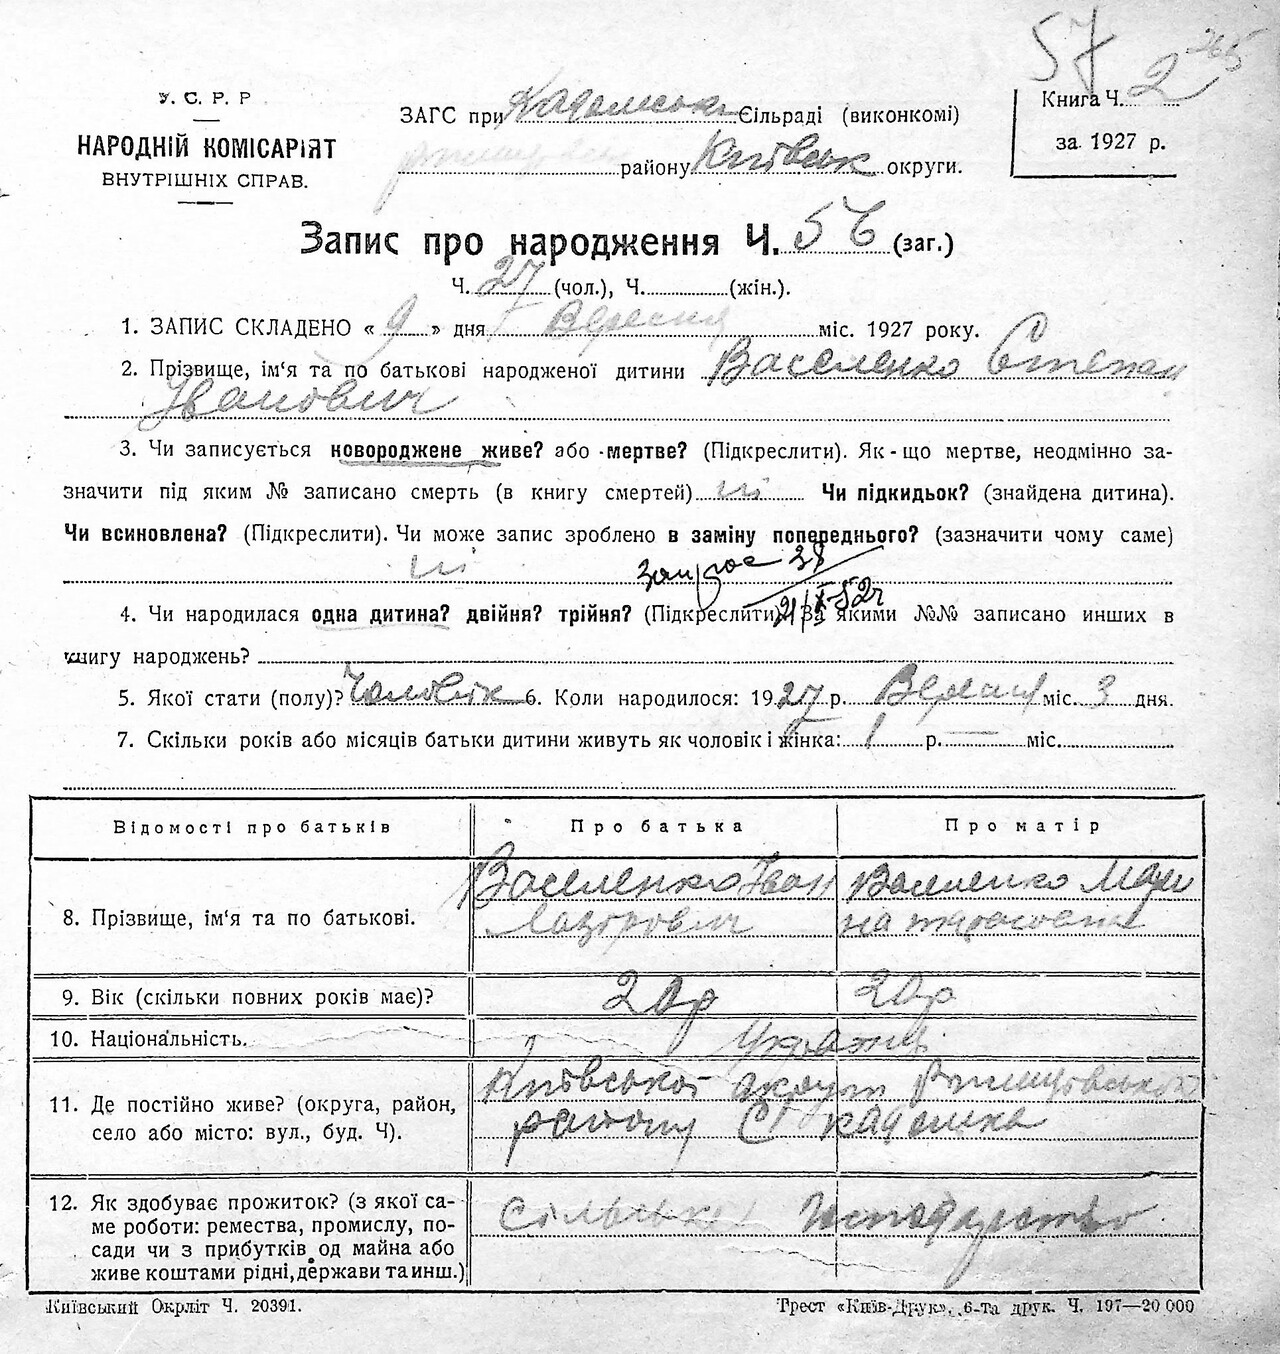 57
265
У. С. Р. Р
НАРОДНІЙ КОМІСАРІЯТ
ВНУТРІШНІХ СПРАВ.
ЗАГС при Кадомськ Сільраді (виконкомі)
району Київськ округи.
Книга Ч. 2
за 1927 р.
Запис про народження Ч. 56 (заг.)
Ч. 27 (чол.), Ч. (жін.).
1. ЗАПИС СКЛАДЕНО « 9 » дня Вересня міс. 1927 року.
2. Прізвище, ім‘я та по батькові народженої дитини Васеленко Степан
Іванович
3. Чи записується новороджене живе? або мертве? (Підкреслити). Як-що мертве, неодмінно за-
значити під яким № записано смерть (в книгу смертей) ні Чи підкидьок? (знайдена дитина).
Чи всиновлена? (Підкреслити). Чи може запис зроблено в заміну попереднього? (зазначити чому саме)
ні
запрос 38
21/X-52г
4. Чи народилася одна дитина? двійня? трійня? (Підкреслити) За якими №№ записано инших в
книгу народжень?
5. Якої стати (полу)? Чоловік 6. Коли народилося: 1927 р. Вересня міс. 3 дня.
7. Скільки років або місяців батьки дитини живуть як чоловік і жінка: 1 р. — міс.
Відомості про батьків Про батька Про матір
Васеленко Іван Василенко Мари
8. Прізвище, ім‘я та по батькові.
Лазорович на
9. Вік (скільки повних років має)? 20р 20р
10. Національність. Україн
Київської округи
11. Де постійно живе? (округа, район,
село або місто: вул., буд. Ч). району С
12. Як здобуває прожиток? (з якої са-
ме роботи: ремества, промислу, по- Сільське Господарство
сади чи з прибутків од майна або
живе коштами рідні, держави та инш.)
Київський Окрліт Ч. 20391.
Трест «Київ-Друк», 6-та друк. Ч. 197—20 000